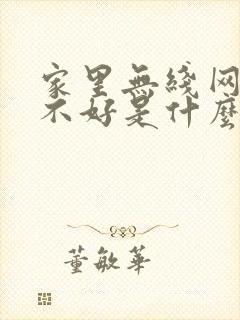 家里無綫网
不好是什麽
董敏華